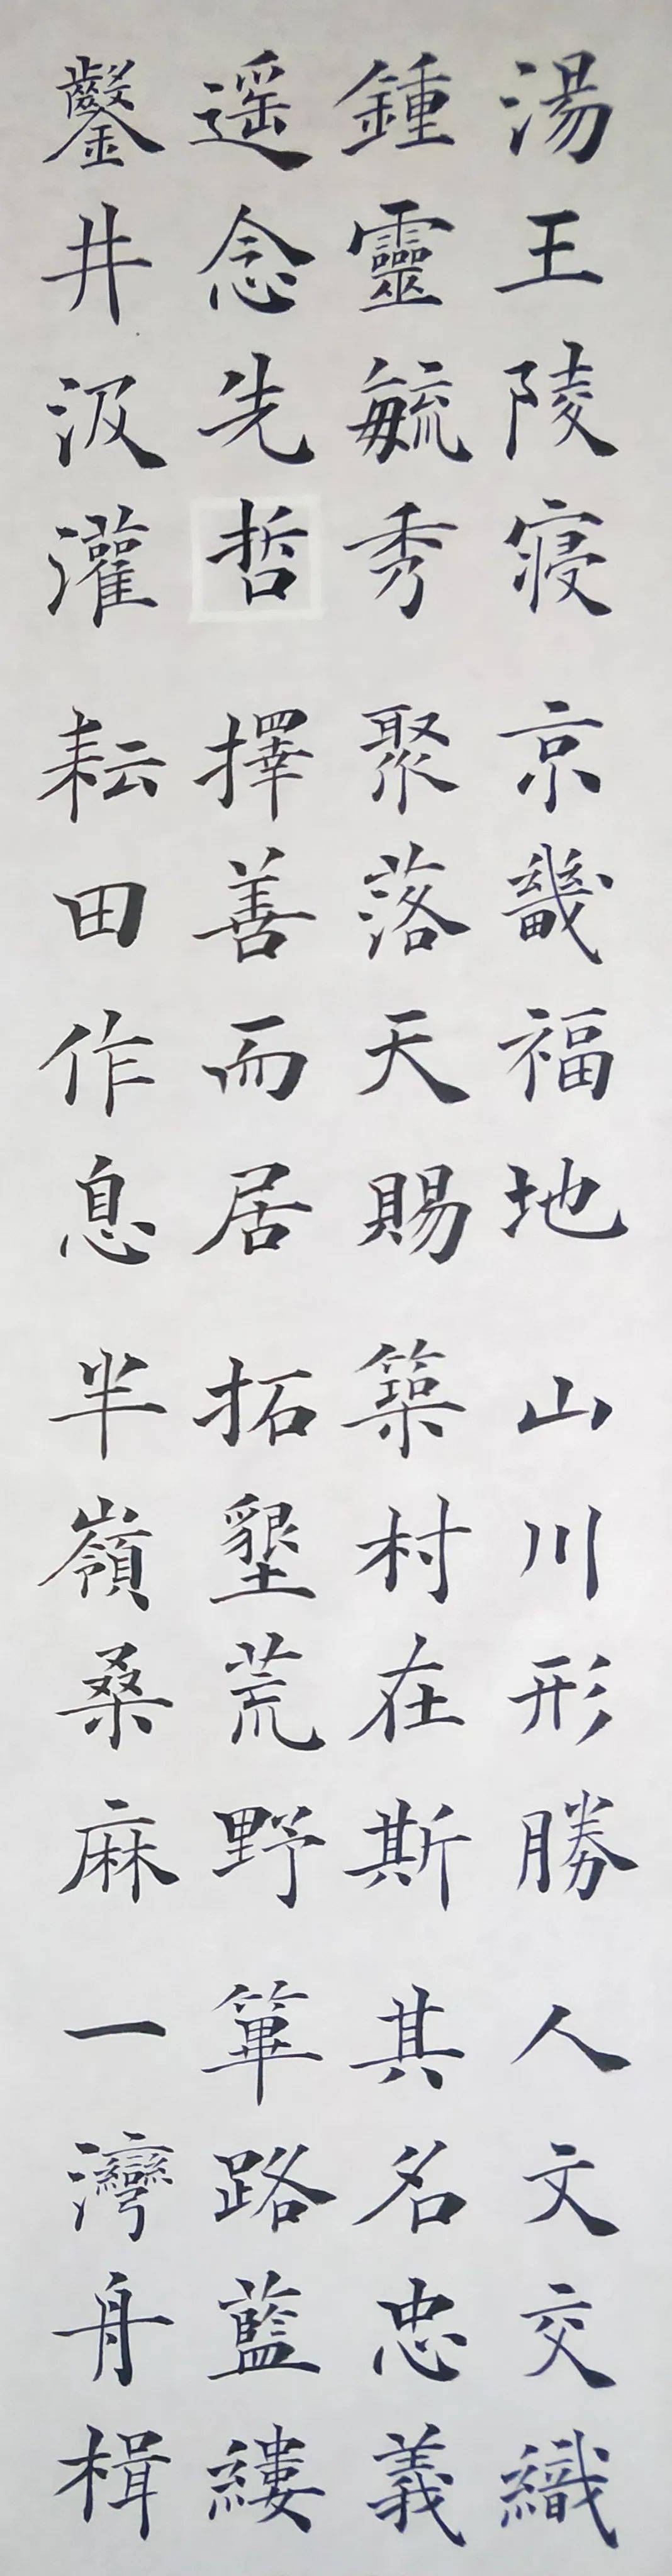 湯王陵寢京畿福地山川形勝人文交織
鍾靈毓秀聚落天賜築村在斯其名忠義
遥念先哲擇善而居拓墾荒野篳路藍縷
鑿井汲灌耘田作息半嶺桑麻一灣舟楫